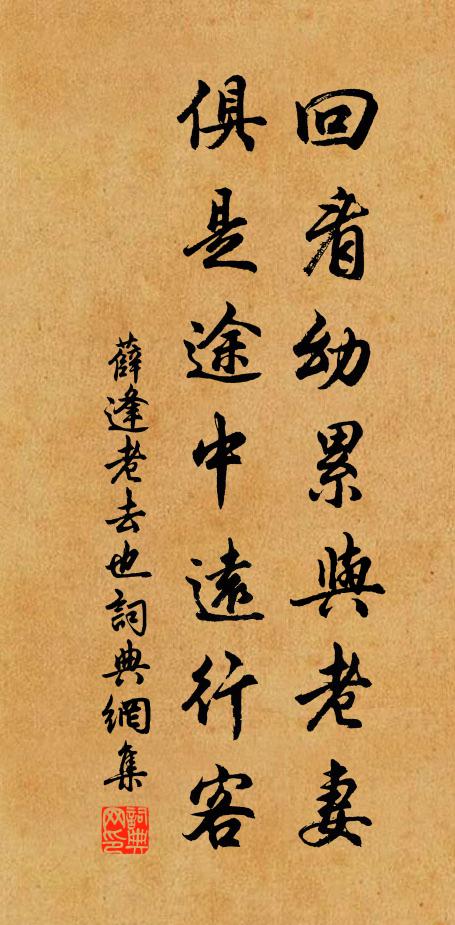 回看幼累與老妻
俱是途中遠行客
薛逢老去也詞典網集
詞典网印